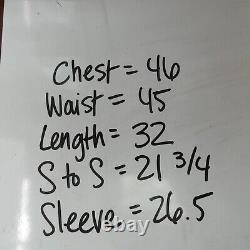 Chest = 46
Waist = 45
Length = 32
S to S = 21 3/4
Sleeve = 26.5